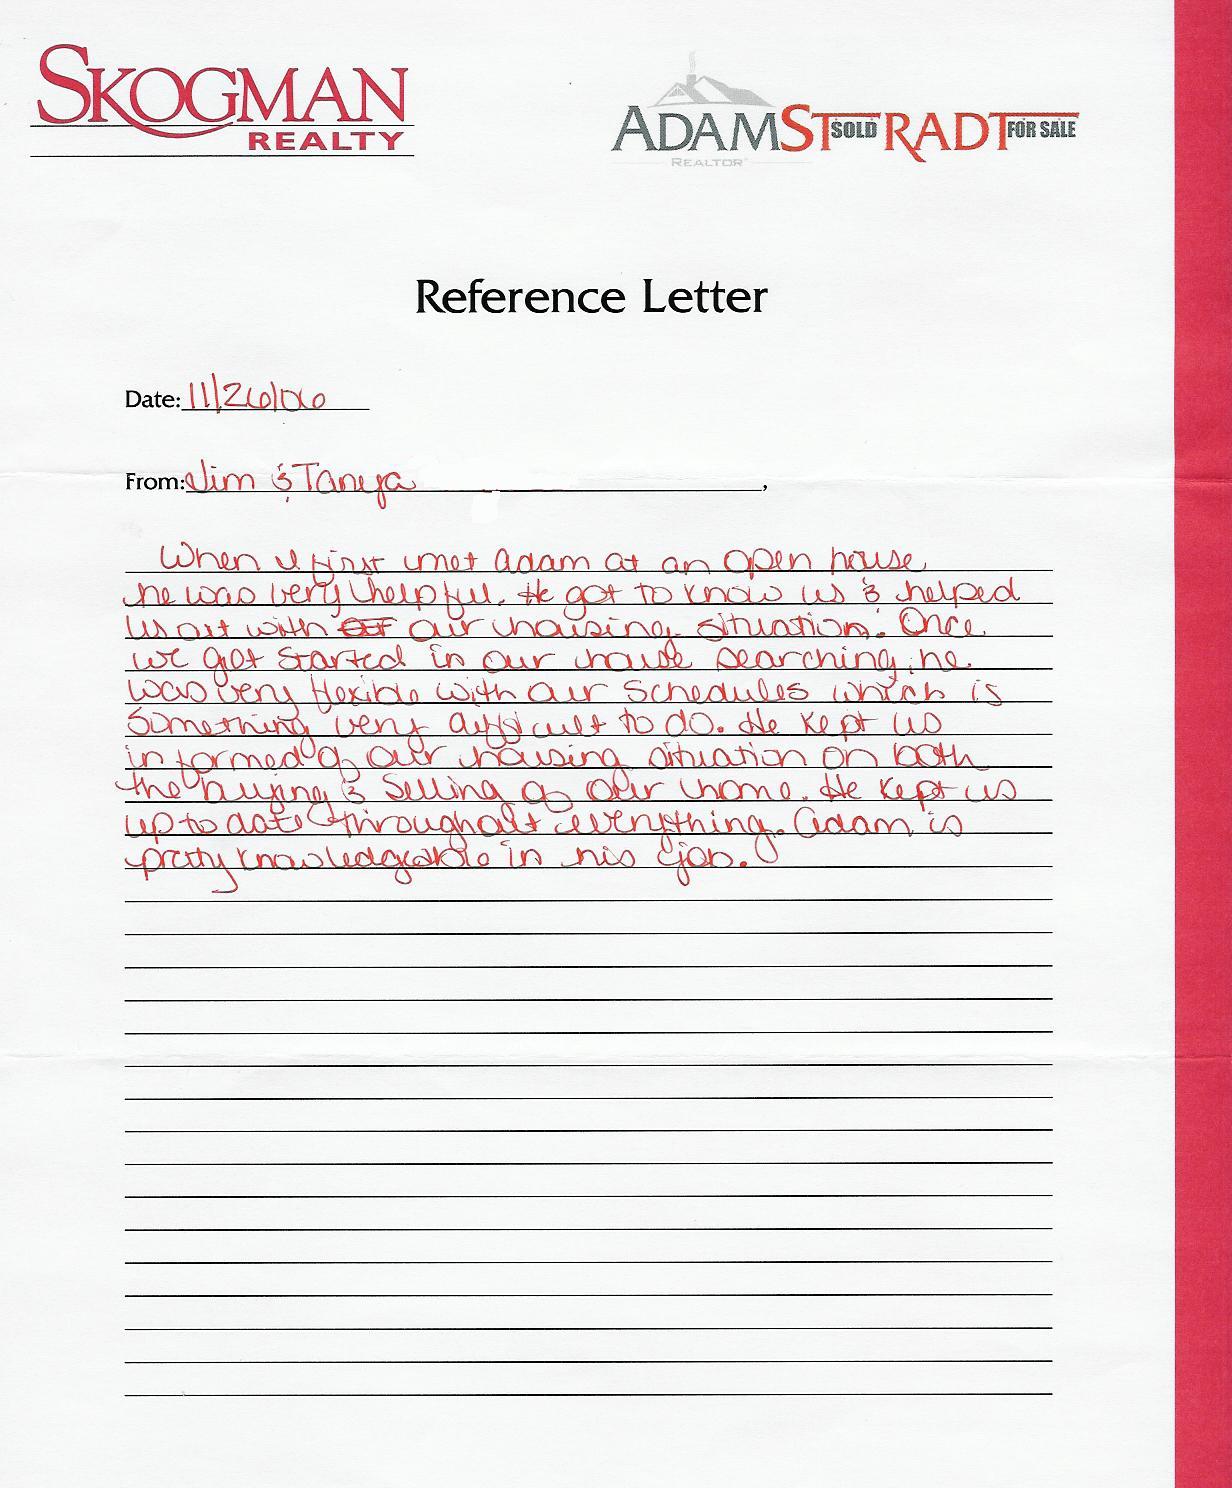 SKOGMAN
REALTY
ADAM STRADT
SOLD
FOR SALE
REALTOR®
Reference Letter
Date: 11/26/06
From: Jim & Tanya ,
When I first met Adam at an open house
he was very helpful. He got to know us & helped
us out with our our housing situation. Once
we got started in our house searching, he
was very flexible with our schedules which is
something very difficult to do. He kept us
informed of our housing situation on both
the buying & selling of our home. He kept us
up to date throughout everything. Adam is
pretty knowledgeable in his job.